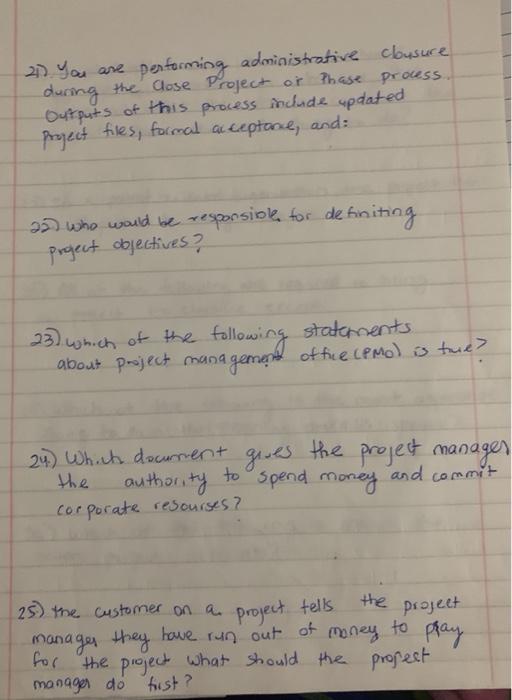 21) You are performing administrative clousure
during the Close Project or Phase process.
Outputs of this process include updated
project files, formal acceptance, and:
22) Who would be responsible for definiting
project objectives?
23) which of the following statements
about project management office (PMO) is true?
24) Which document gives the project manager
the authority to spend money and commit
corporate resourses?
25) the customer on a project tells the project
manager they have run out of money to pay
for the project what should the project
manager do first?